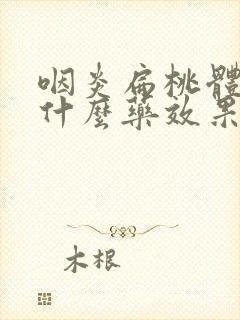 咽炎扁桃體
什麼藥效果
木根